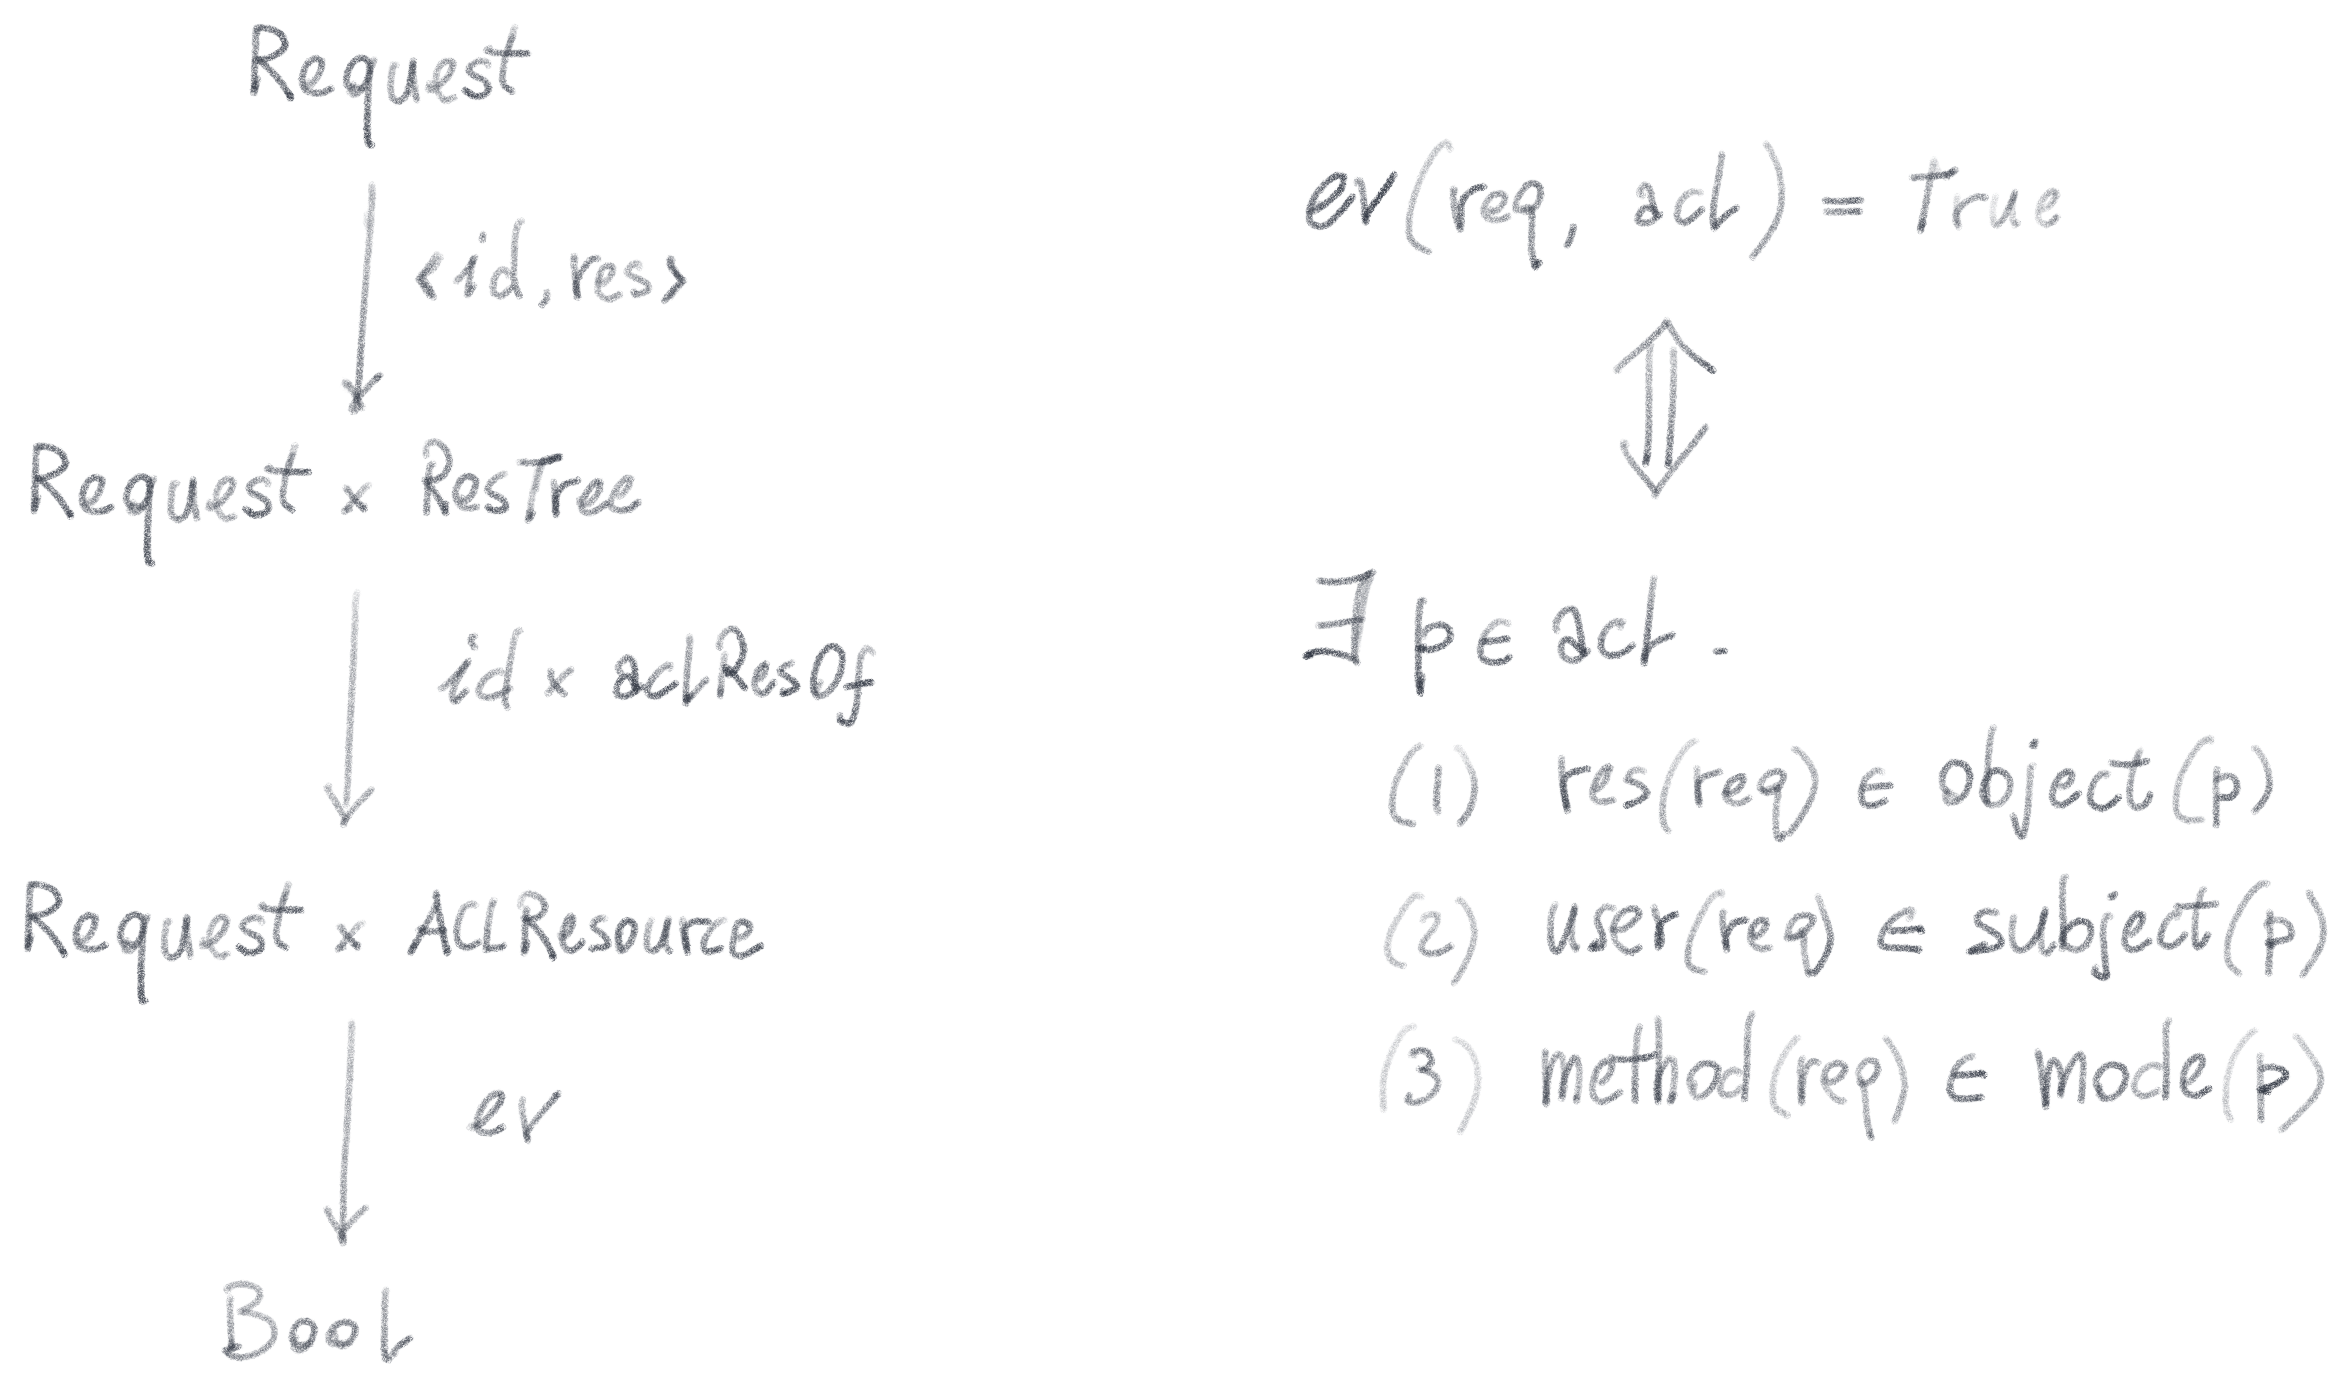 Request
<id, res>
Request × ResTree
id × aclResOf
Request × ACLResource
ev
Bool
ev(req, acl) = True
⇕
∃ p ∈ acl .
(1) res(req) ∈ object(p)
(2) user(req) ∈ subject(p)
(3) method(req) ∈ mode(p)